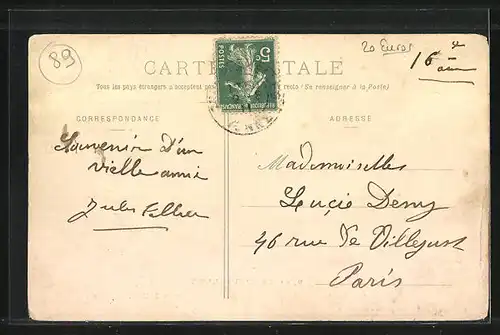 89
20 Euros
16 e
CARTE POSTALE
Tous les pays étrangers n'acceptent pas recto (Se renseigner à la Poste)
CORRESPONDANCE
ADRESSE
5c
POSTES
REPUBLIQUE FRANÇAISE
Souvenir d'un
vielle ami
Jules
Mademoiselles
Lucie Demy
46 rue De Villejust
Paris